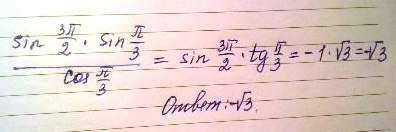 sin 3π/2 · sin π/3 / cos π/3 = sin 3π/2 · tg π/3 = -1·√3 = -√3
Ответ: -√3.